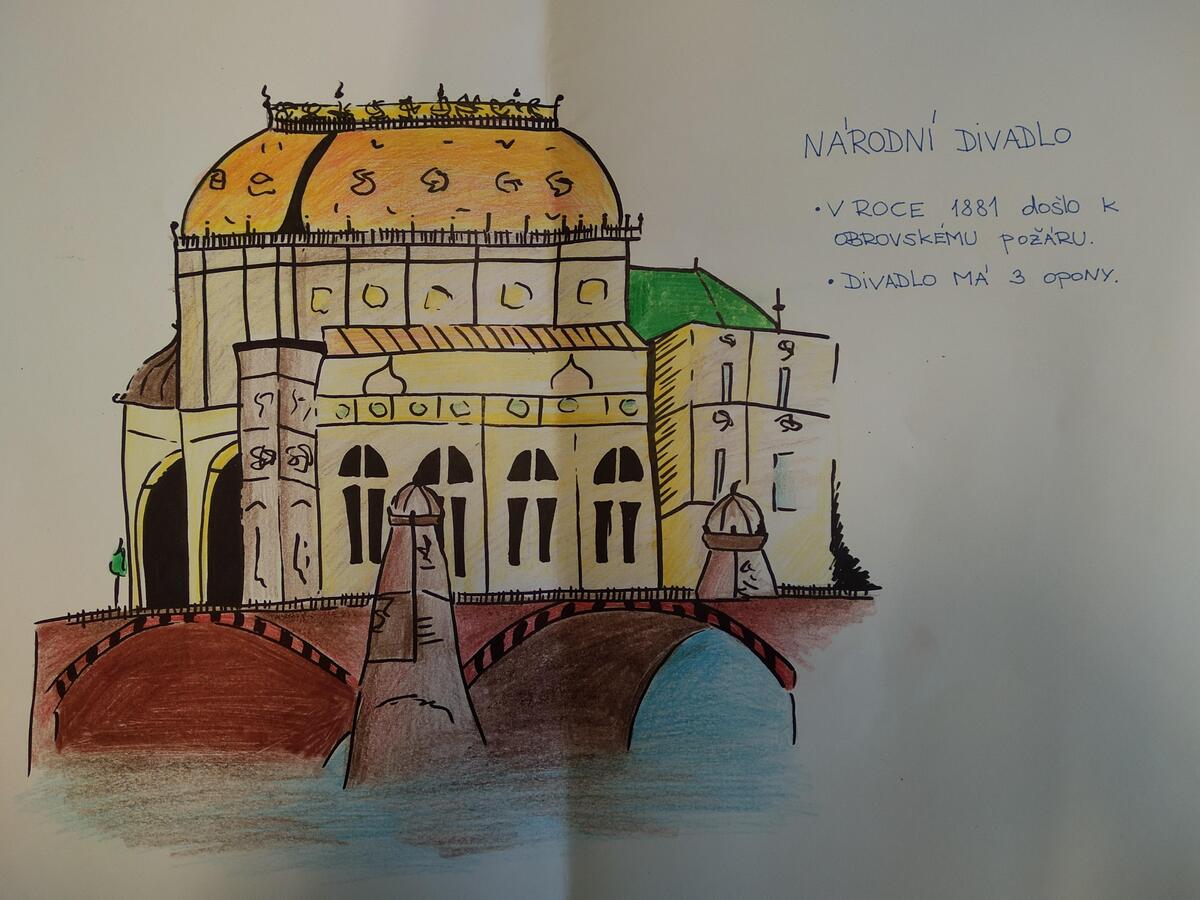 NÁRODNÍ DIVADLO
• V ROCE 1881 došlo k
OBROVSKÉMU POŽÁRU.
• DIVADLO MÁ 3 OPONY.